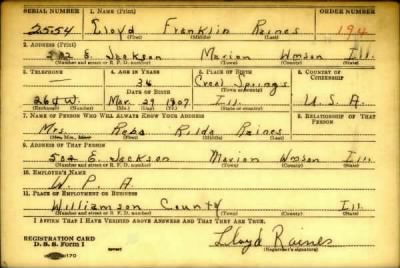 SERIAL NUMBER 1. NAME (Print) ORDER NUMBER
2554 Lloyd Franklin Raines 194
(First) (Middle) (Last)
2. ADDRESS (Print)
502 E. Jackson Marion Wmson Ill.
(Number and street or R. F. D. number) (Town) (County) (State)
3. TELEPHONE 4. AGE IN YEARS 5. PLACE OF BIRTH 6. COUNTRY OF CITIZENSHIP
Creal Springs
DATE OF BIRTH
264W. Mar. 29 1907 Ill. U. S. A.
(Exchange) (Number) (Mo.) (Day) (Yr.) (State or country)
7. NAME OF PERSON WHO WILL ALWAYS KNOW YOUR ADDRESS 8. RELATIONSHIP OF THAT PERSON
Mrs. Rilda Raines
(Mr., Mrs., Miss) (First) (Middle) (Last)
9. ADDRESS OF THAT PERSON
E. Jackson Marion Wmson Ill.
(Number and street or R. F. D. number) (Town) (County) (State)
10. EMPLOYER'S NAME
W. P. A
11. PLACE OF EMPLOYMENT OR BUSINESS
Williamson County Ill.
(Number and street or R. F. D. number) (Town) (County) (State)
I AFFIRM THAT I HAVE VERIFIED ABOVE ANSWERS AND THAT THEY ARE TRUE.
REGISTRATION CARD
D. S. S. Form 1
Lloyd Raines
(Registrant's signature)